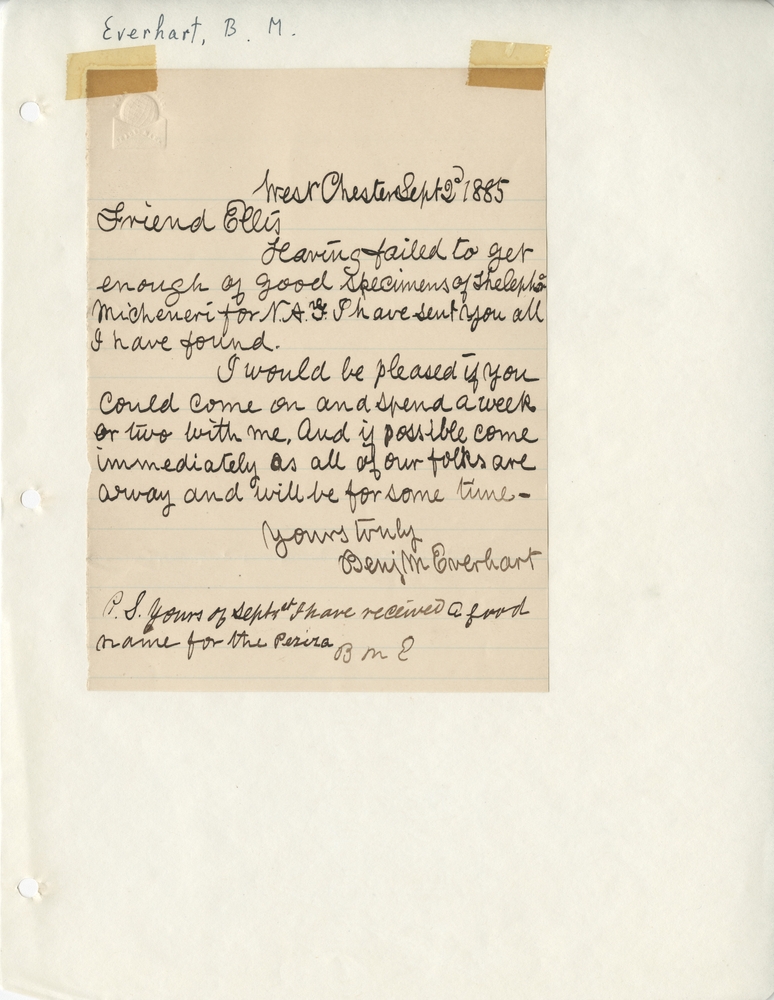 Everhart, B. M.
West Chester Sept 2d 1885
Friend Ellis
Having failed to get
enough of good Specimens of Thelepho
Micheneri for N.A.F. I have sent you all
I have found.
I would be pleased if you
could come on and spend a week
or two with me. And if possible come
immediately as all of our folks are
away and will be for some time-
Yours truly
Benj M Everhart
P. S. Yours of Sept 1st I have received a good
name for the Peziza
B M E